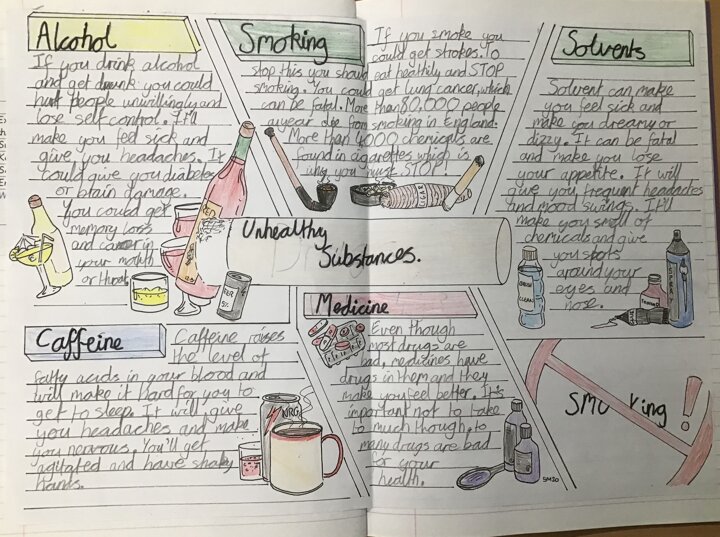 Alcohol
If you drink alcohol
and get drunk you could
hurt people unwillingly and
lose self control. It'll
make you feel sick and
give you headaches. It
could give you diabetes
or brain damage.
You could get
memory loss
and cancer in
your mouth
or throat.
Smoking
If you smoke you
could get strokes. To
stop this you should eat healthily and STOP
smoking. You could get lung cancer, which
can be fatal. More than 80,000 people
a year die from smoking in England.
More than 4000 chemicals are
found in cigarettes which is
why you must STOP!
Solvents
Solvent can make
you feel sick and
make you dreamy or
dizzy. It can be fatal
and make you lose
your appetite. It will
give you frequent headaches
and mood swings. It'll
make you smell of
chemicals and give
you spots
around your
eyes and
nose.
Unhealthy
Substances.
Caffeine
Caffeine raises
the level of
fatty acids in your blood and
will make it hard for you to
get to sleep. It will give
you headaches and make
you nervous. You'll get
agitated and have shaky
hands.
NRG
Medicine
Even though
most drugs are
bad, medicines have
drugs in them and they
make you feel better. It's
important not to take
to much though, to
many drugs are bad
for your
health.
SM20
SMO king!
CLEAN
SPRAY